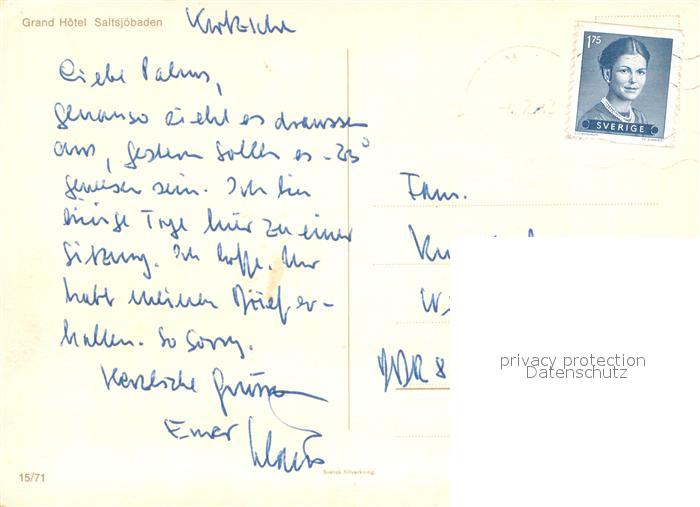 Grand Hôtel Saltsjöbaden
Liebe Palms,
genauso sieht es draussen
aus, gestern sollen es -23°
gewesen sein. Ich bin
einige Tage hier zu einer
Sitzung. Ich hoffe, Ihr
habt meinen Brief er-
halten. So sorry.
Herzliche Grüsse
Euer Klaus
1.75
SVERIGE
Fam.
DDR 8
privacy protection
Datenschutz
15/71
Svensk tillverkning